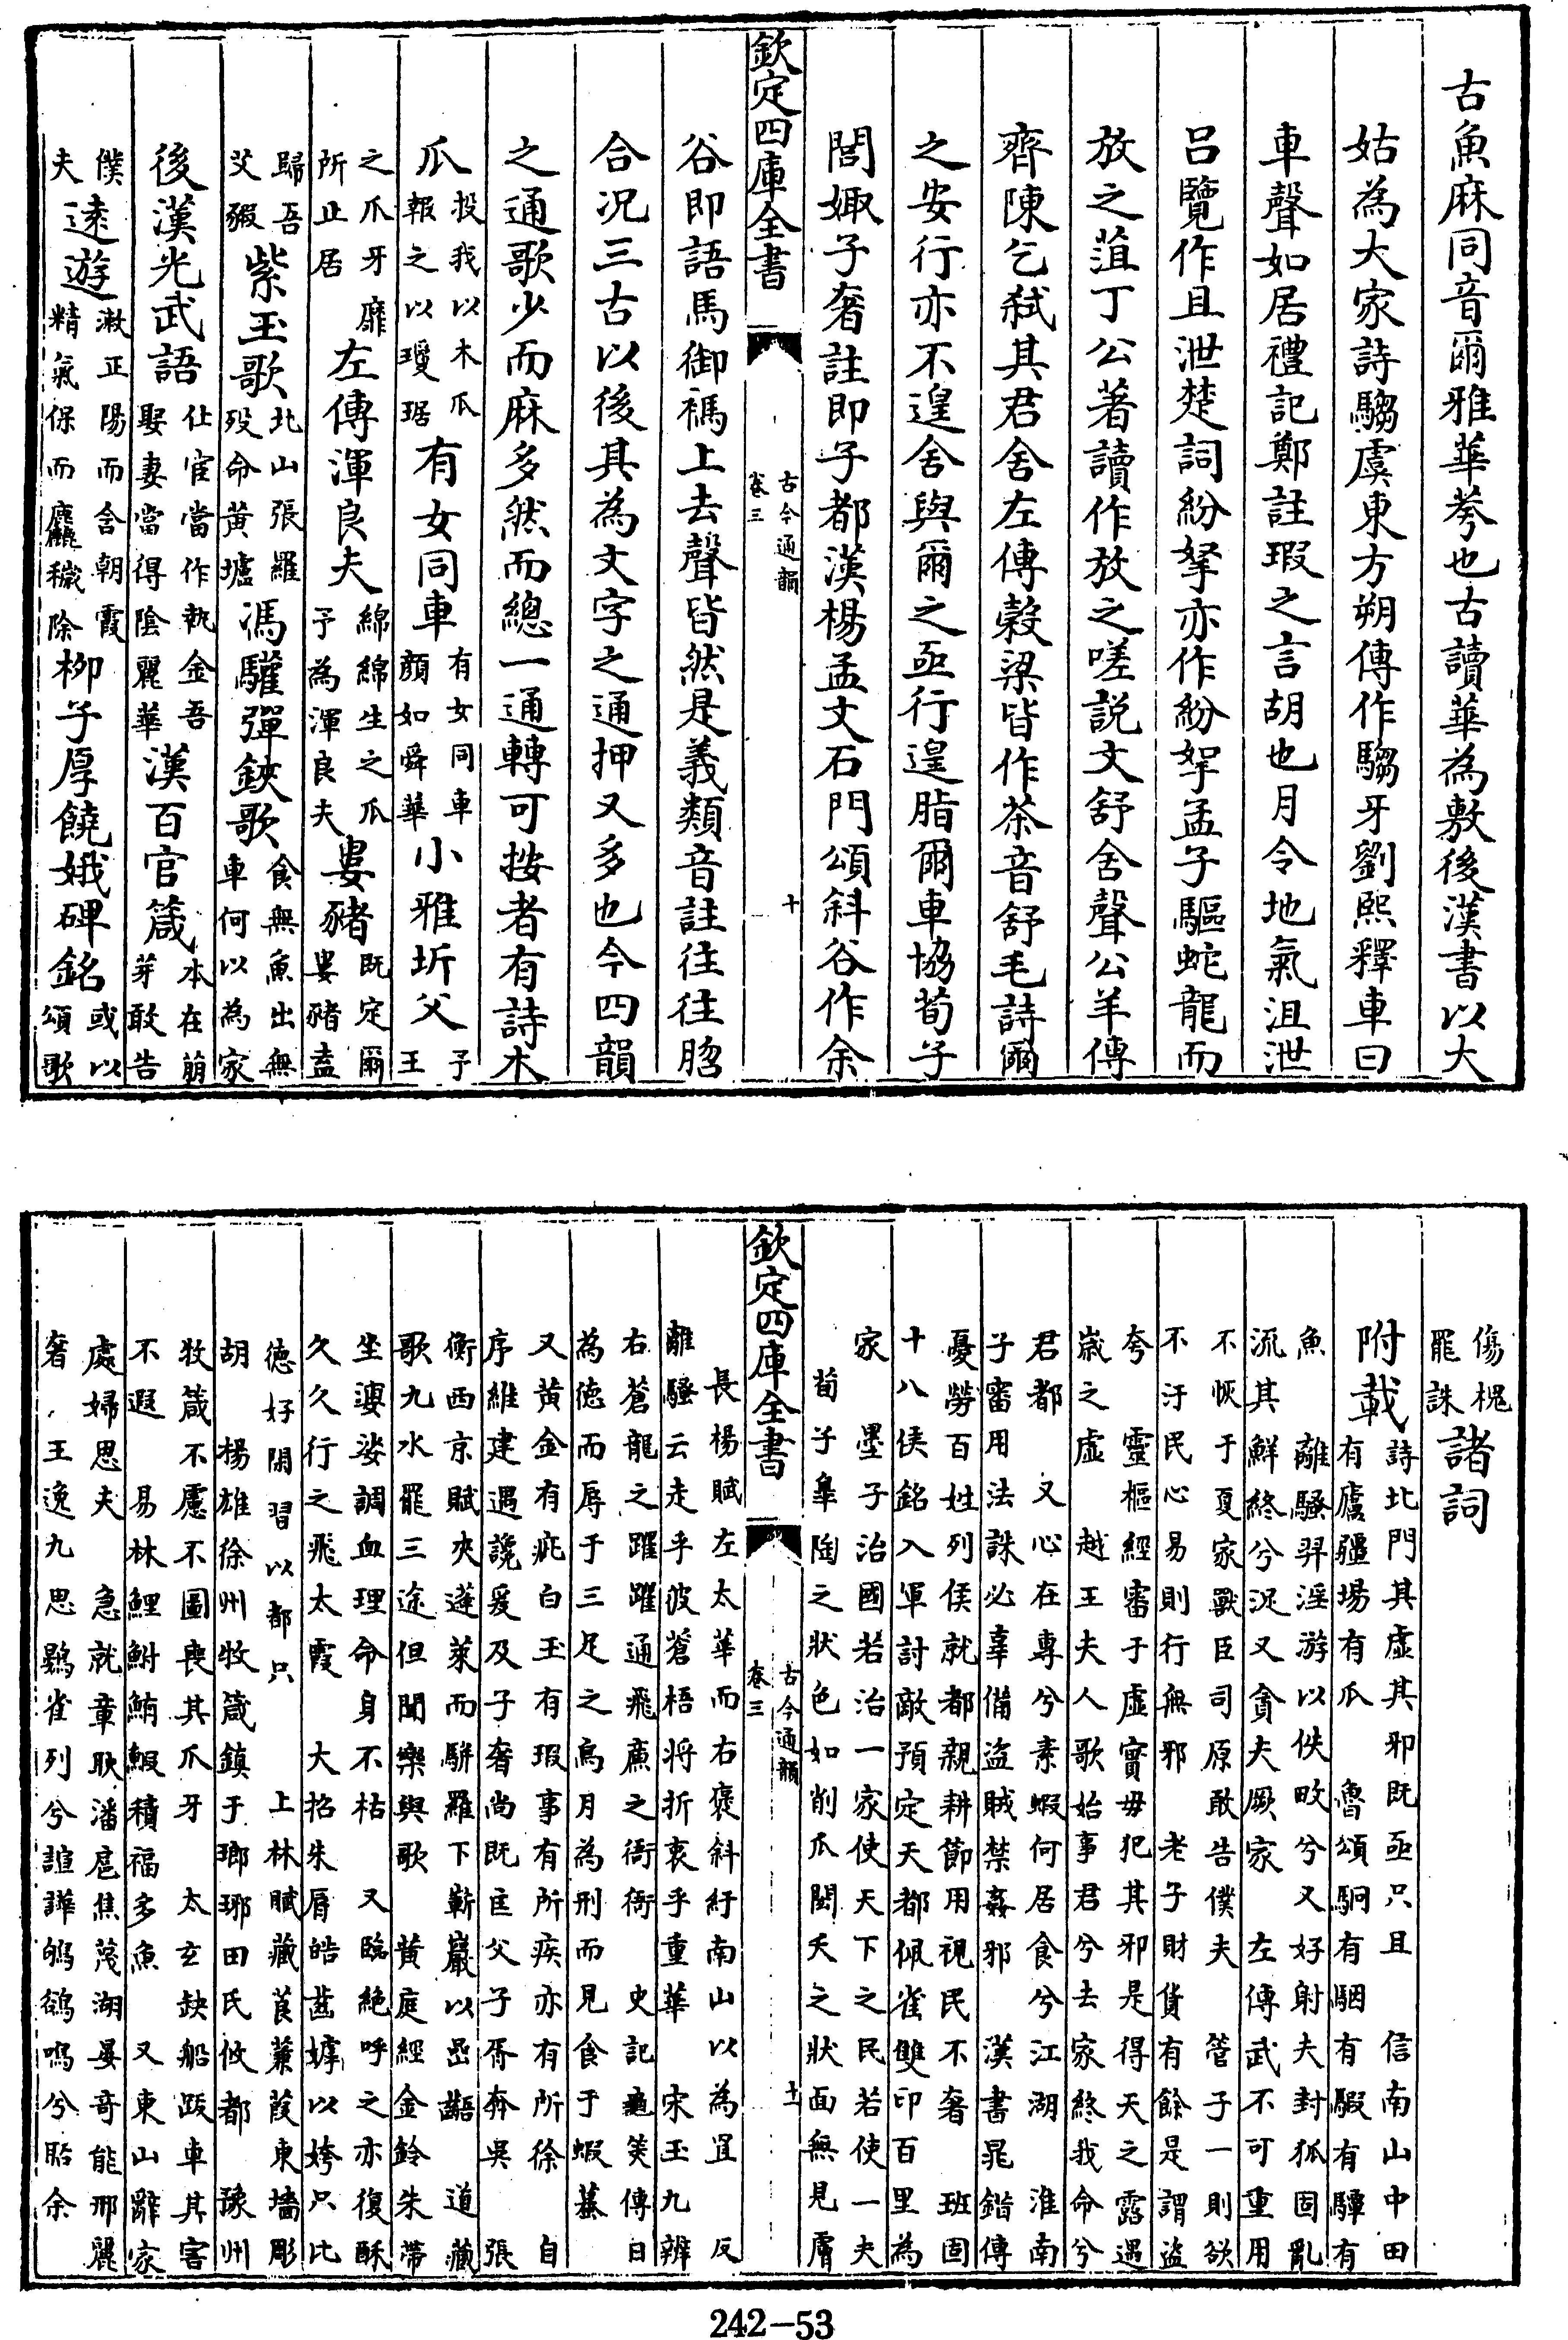 古魚麻同音爾雅華荂也古讀華為敷後漢書以大
姑為大家詩騶虞東方朔傳作騶牙劉熙釋車曰
車聲如居禮記鄭註瑕之言胡也月令地氣沮泄
呂覽作且泄楚詞紛拏亦作紛挐孟子驅蛇龍而
放之菹丁公著讀作放之嗟説文舒舍聲公羊傳
齊陳乞弑其君舍左傳榖梁皆作荼音舒毛詩爾
之安行亦不遑舍與爾之亟行遑脂爾車協荀子
閭娵子奢註即子都漢楊孟文石門頌斜谷作余
欽定四庫全書 古今通韻 卷三 十
谷即語馬御禡上去聲皆然是義類音註往往脗
合況三古以後其為文字之通押又多也今四韻
之通歌少而麻多然而總一通轉可按者有詩木
瓜投我以木瓜報之以瓊琚有女同車有女同車顏如舜華小雅圻父予王
之爪牙靡所止居左傳渾良夫綿綿生之瓜予為渾良夫婁豬既定爾婁豬盍
歸吾艾豭紫玉歌北山張羅歿命黃壚馮驩彈鋏歌食無魚出無車何以為家
後漢光武語仕宦當作執金吾娶妻當得陰麗華漢百官箴本在萌芽敢告
僕夫逺遊漱正陽而含朝霞精氣保而麤穢除柳子厚饒娥碑銘或以頌歌
傷槐罷誅諸詞
附載詩北門其虛其邪既亟只且 信南山中田有廬疆場有瓜 魯頌駉有駰有騢有驒有
魚 離騷羿淫游以佚畋兮又好射夫封狐固亂流其鮮終兮浞又貪夫厥家 左傳武不可重用
不恢于夏家獸臣司原敢告僕夫 管子一則欲不汙民心易則行無邪 老子財貨有餘是謂盜
夸 靈樞經審于虛實毋犯其邪是得天之露遇歲之虛 越王夫人歌始事君兮去家終我命兮
君都 又心在專兮素蝦何居食兮江湖 淮南子審用法誅必辜備盜賊禁姦邪 漢書晁錯傳
憂勞百姓列侯就都親耕節用視民不奢 班固十八侯銘入軍討敵預定天都佩雀雙印百里為
家 墨子治國若治一家使天下之民若使一夫 荀子臯陶之狀色如削瓜閎夭之狀面無見膚
欽定四庫全書 古今通韻 卷三 十一
長楊賦左太華而右褒斜紆南山以為罝 反離騷云走乎彼蒼梧將折衷乎重華 宋玉九辨
右蒼龍之躍躍通飛廉之衙衙 史記龜筴傳日為徳而辱于三足之烏月為刑而見食于蝦蟇
又黃金有疵白玉有瑕事有所疾亦有所徐 自序維建遇讒爰及子奢尚既匡父子胥奔吳 張
衡西京賦夾蓬萊而駢羅下嶄巖以嵒齬 道藏歌九水罷三途但聞樂與歌 黃庭經金鈴朱帶
坐婆娑調血理命身不枯 又臨絶呼之亦復酥久久行之飛太霞 大招朱脣皓齒嫭以姱只比
徳好閑習以都只 上林賦藏茛蒹葭東墻彫胡 楊雄徐州牧箴鎮于瑯琊田氏攸都 豫州
牧箴不慮不圖喪其爪牙 太玄缺船跋車其害不遐 易林鯉鮒鮪鰕積福多魚 又東山辭家
處婦思夫 急就章耿潘扈焦滅湖晏奇能邢麗奢 王逸九思鷃雀列兮諠譁鴝鵒鳴兮聒余
242-53